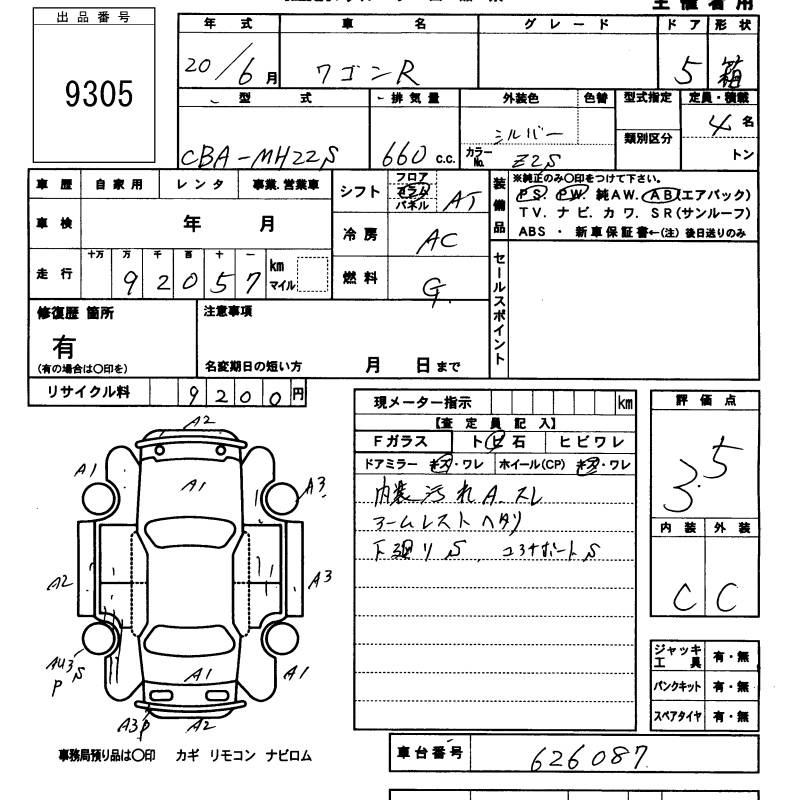 出品番号
9305
年式 車名 グレード ドア 形状
20/6月 ワゴンR 5 箱
型式 排気量 外装色 色替 型式指定 定員・積載
CBA-MH22S 660 C.C. シルバー カラーNo. Z2S 類別区分 4名
トン
車歴 自家用 レンタ 事業.営業車
車検 年 月
走行 十万 万 千 百 十 一
92057 km
マイル
シフト フロア コラム パネル AT
冷房 AC
燃料 G.
装備品
※純正のみ〇印をつけて下さい。
PS. PW. 純AW. AB(エアバック)
TV. ナビ. カワ. SR(サンルーフ)
ABS ・ 新車保証書←(注) 後日送りのみ
セールスポイント
修復歴 箇所
有
(有の場合は〇印を)
注意事項
名変期日の短い方 月 日まで
リサイクル料 9200円
現メーター指示 km
【査定員記入】
Fガラス トビ石 ヒビワレ
ドアミラー キズ・ワレ ホイール(CP) キズ・ワレ
内装汚れA. スレ
アームレストヘタリ
下廻りS、コアサポートS
評価点
3.5
内装 外装
C C
ジャッキ工具 有・無
パンクキット 有・無
スペアタイヤ 有・無
A2
A1
A1
A3
A2
A3
AU3 S
P
A1
A1
A3P
A2
事務局預り品は〇印 カギ リモコン ナビロム
車台番号 626087